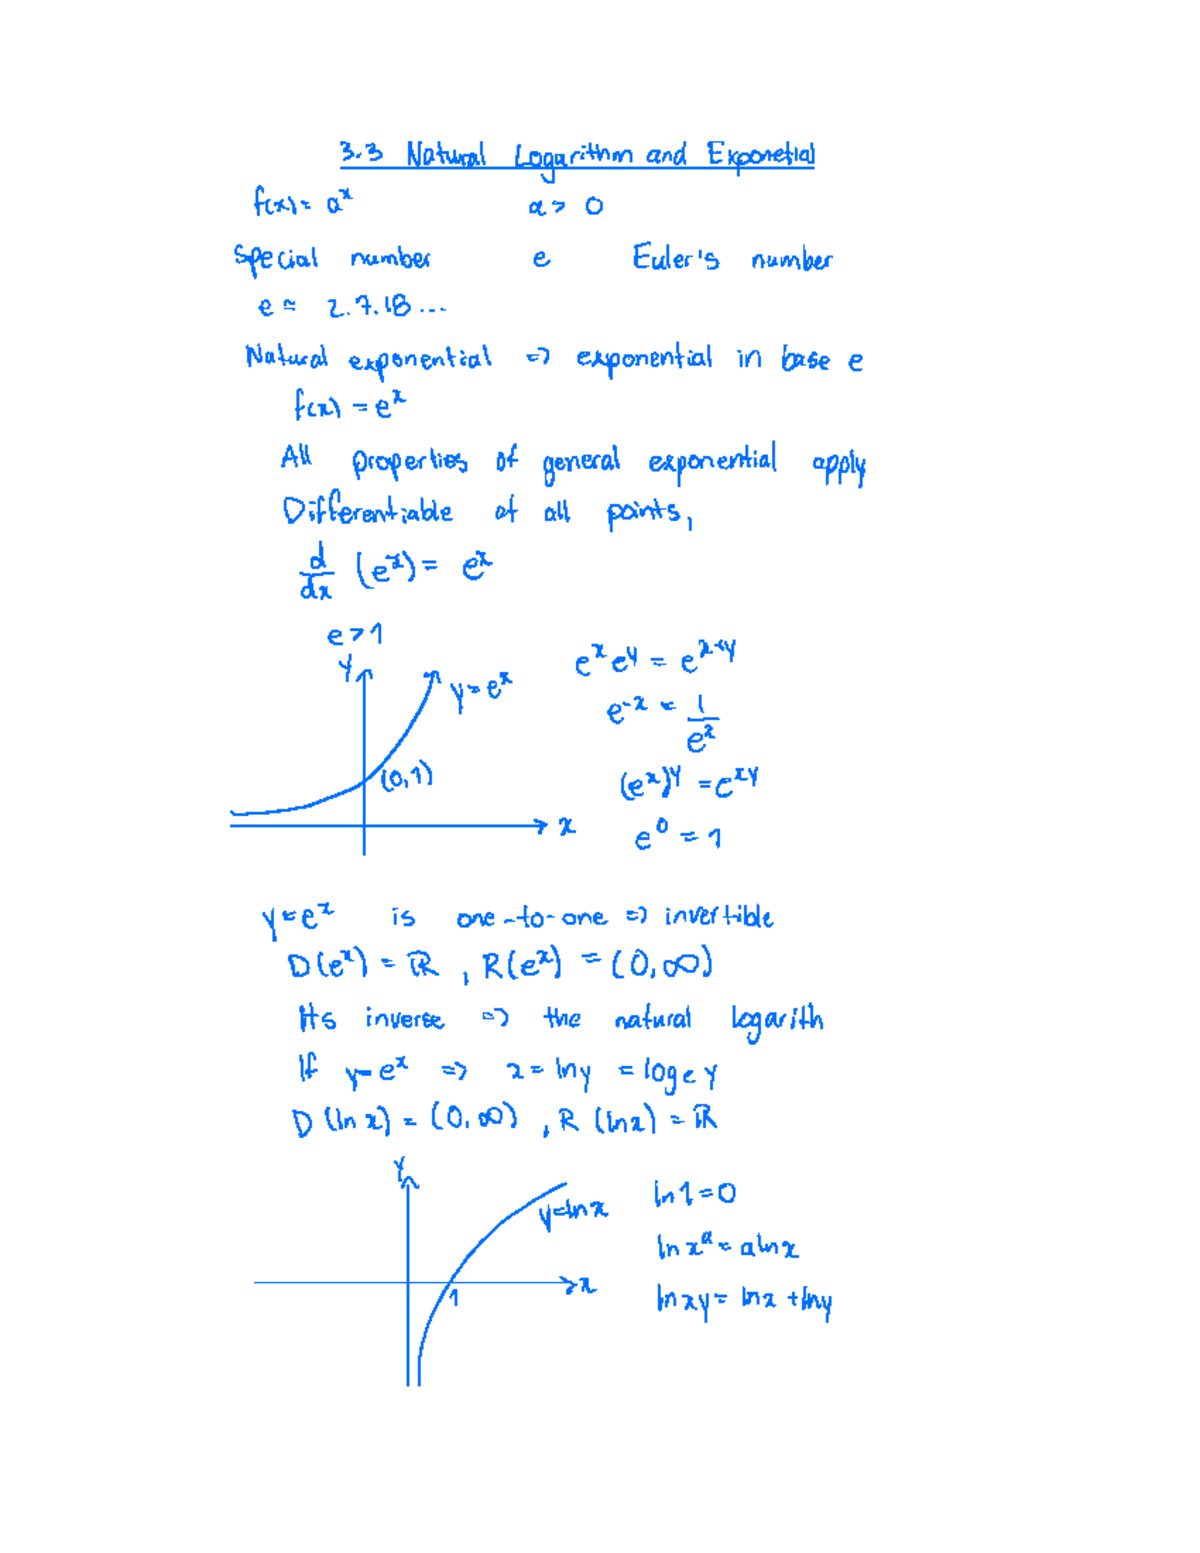 3.3 Natural Logarithm and Exponetial
f(x) = aˣ a > 0
Special number e Euler's number
e ≈ 2.7.18...
Natural exponential => exponential in base e
f(x) = eˣ
All properties of general exponential apply
Differentiable at all points,
d/dx (eˣ) = eˣ
e > 1
y
y = eˣ
(0,1)
x
eˣ eʸ = eˣ⁺ʸ
e⁻ˣ = 1/eˣ
(eˣ)ʸ = eˣʸ
e⁰ = 1
y = eˣ is one-to-one => invertible
D(eˣ) = ℝ, R(eˣ) = (0,∞)
Its inverse => the natural logarith
If y = eˣ => x = ln y = logₑ y
D(ln x) = (0,∞), R(ln x) = ℝ
y
y = ln x
x
1
ln 1 = 0
ln xᵃ = a ln x
ln xy = ln x + ln y